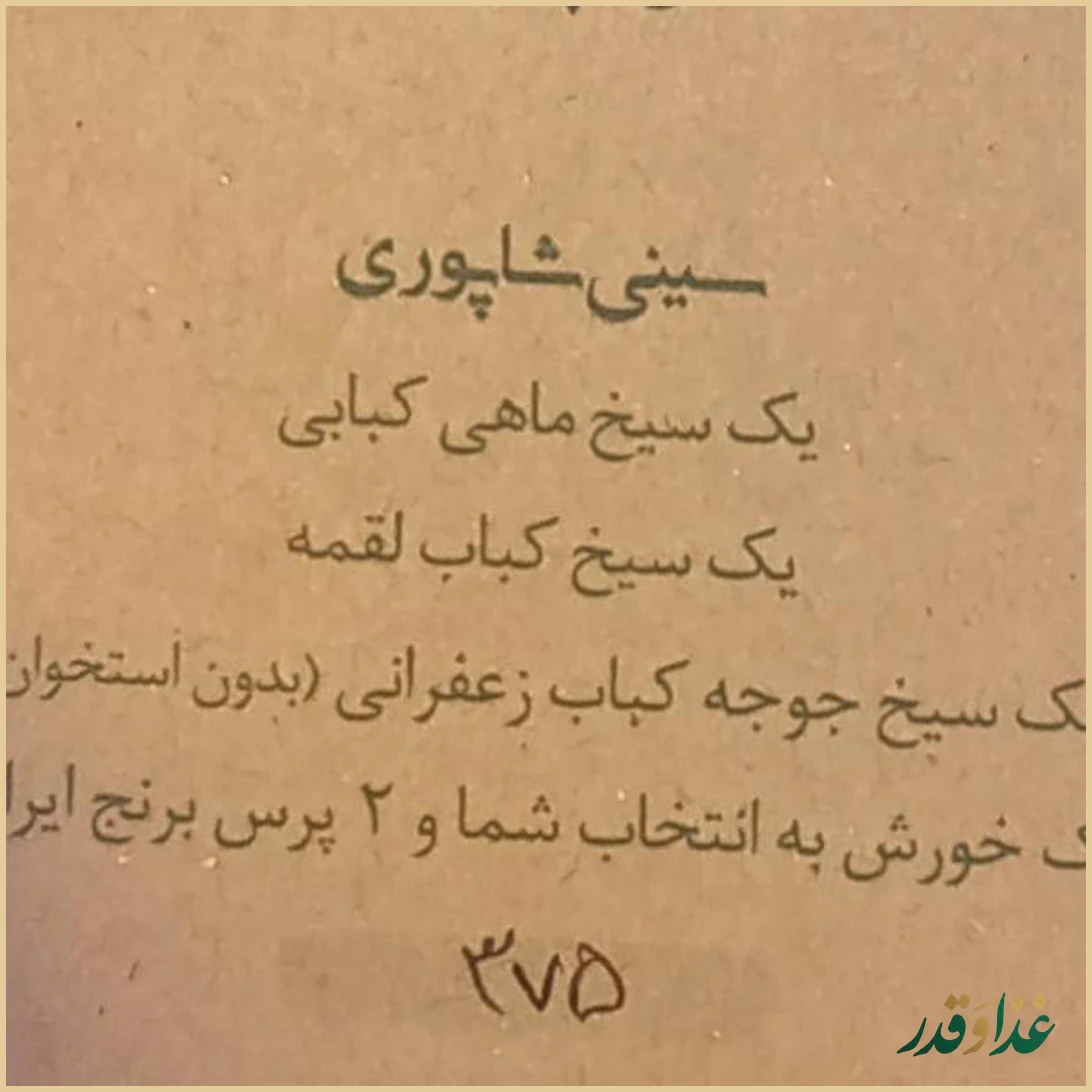 سینی شاپوری
یک سیخ ماهی کبابی
یک سیخ کباب لقمه
ک سیخ جوجه کباب زعفرانی (بدون استخوان
ک خورش به انتخاب شما و ۲ پرس برنج ایرا
۳۷۵
غذا و قدر